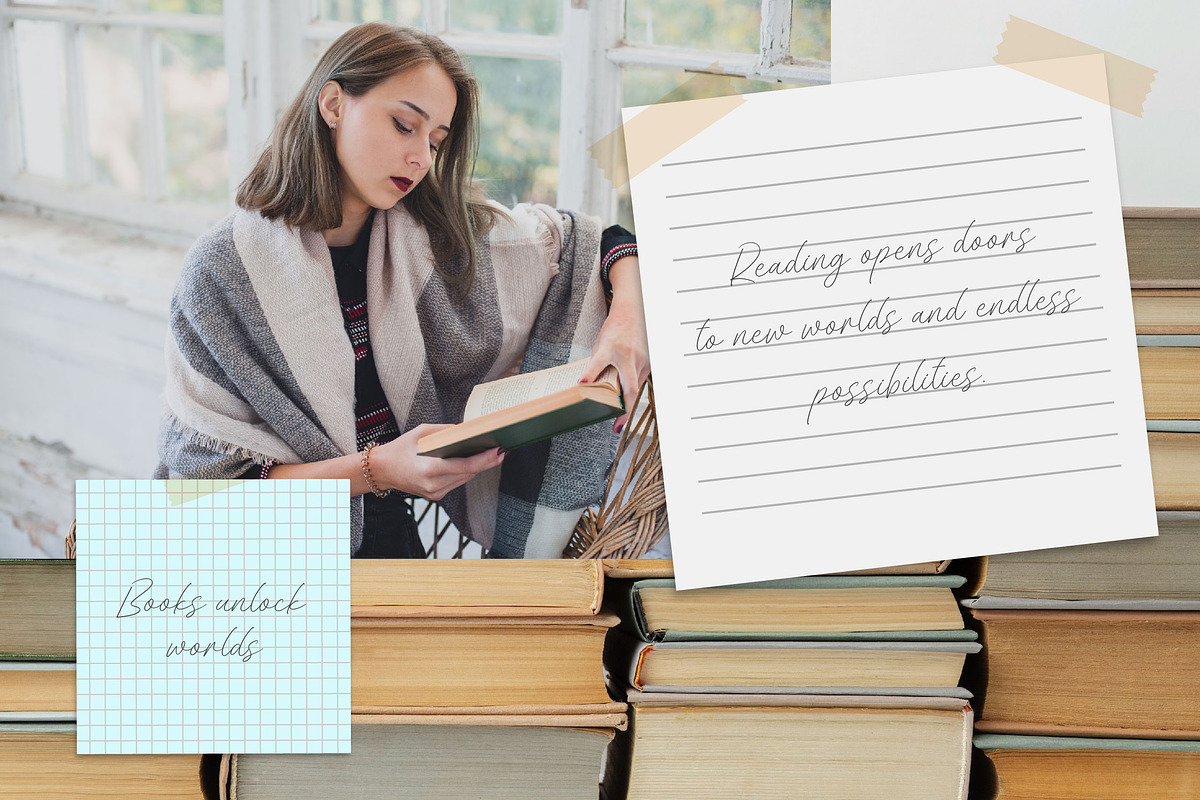 Reading opens doors
to new worlds and endless
possibilities.
Books unlock
worlds